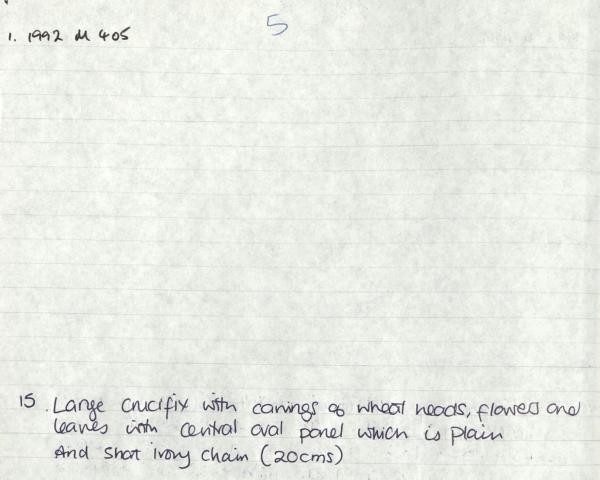 5
1. 1992 M 405
15. Large crucifix with carvings of wheat heads, flowers and
leaves with central oval panel which is plain
And short ivory chain (20cms)